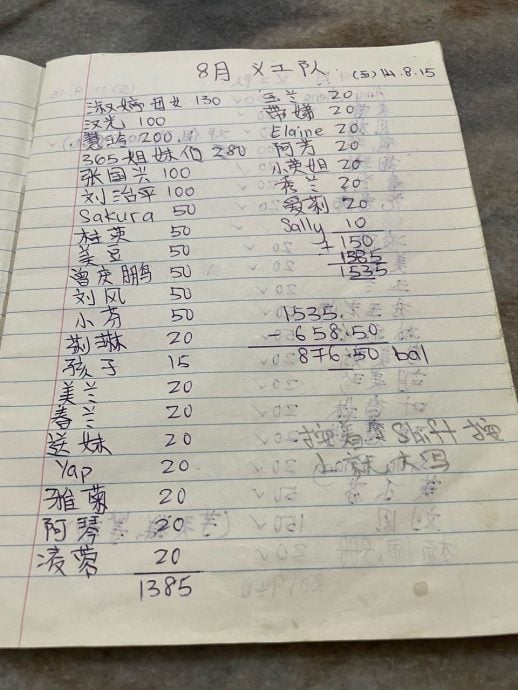 8月 义工队 (五) 14.8.15
淑婷母女 130
汉光 100
慧玲 200
365姐妹伯 280
张国兴 100
刘治平 100
Sakura 50
桂英 50
美豆 50
曾庆鹏 50
刘风 50
小芬 50
荆琳 20
孩子 15
美兰 20
春兰 20
送妹 20
Yap 20
雅菊 20
阿琴 20
凌蓉 20
1385
玉兰 20
带娣 20
Elaine 20
阿芳 20
小英姐 20
秀兰 20
爱莉 20
Sally 10
+ 150
1385
1535
1535.
- 658.50
876.50 bal